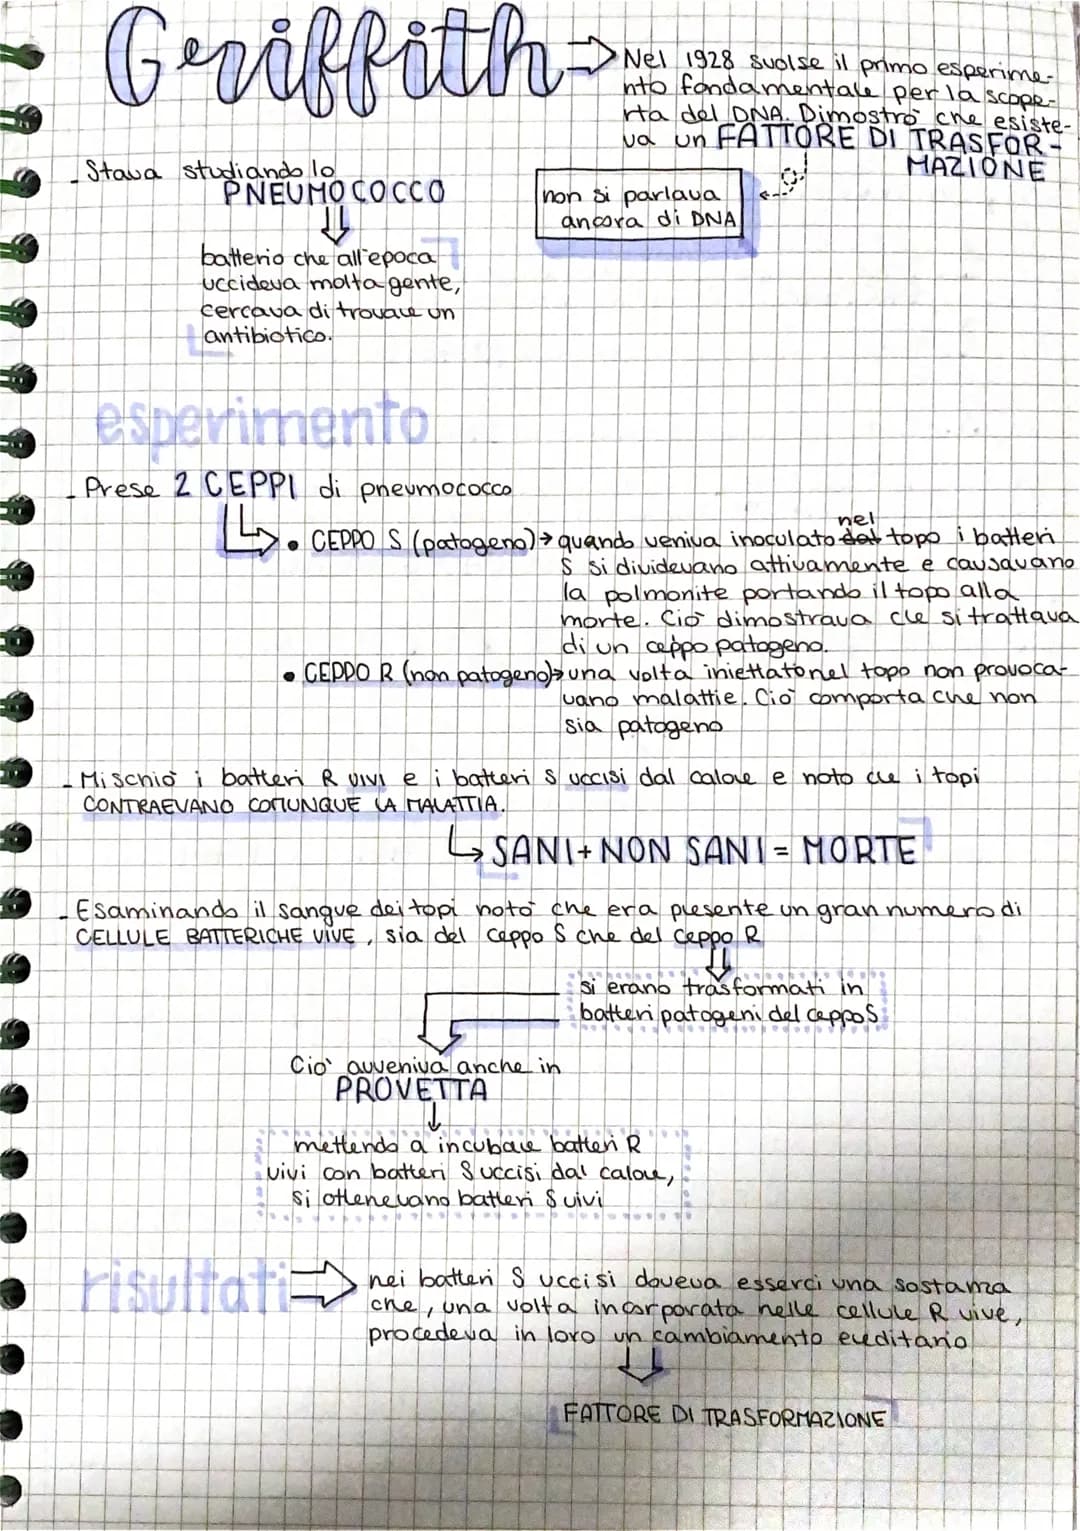 Griffith
Nel 1928 svolse il primo esperime-
nto fondamentale per la scope-
rta del DNA. Dimostrò che esiste-
va un FATTORE DI TRASFOR-
MAZIONE
non si parlava
ancora di DNA
- Stava studiando lo
PNEUMOCOCCO
batterio che all'epoca
uccideva molta gente,
cercava di trovare un
antibiotico.
esperimento
- Prese 2 CEPPI di pneumococco
• CEPPO S (patogeno) → quando veniva inoculato dal nel topo i batteri
S si dividevano attivamente e causavano
la polmonite portando il topo alla
morte. Ciò dimostrava che si trattava
di un ceppo patogeno.
• CEPPO R (non patogeno) → una volta iniettato nel topo non provoca-
vano malattie. Ciò comporta che non
sia patogeno
- Mischiò i batteri R vivi e i batteri S uccisi dal calore e notò che i topi
CONTRAEVANO COMUNQUE LA MALATTIA.
↳ SANI + NON SANI = MORTE
- Esaminando il sangue dei topi notò che era presente un gran numero di
CELLULE BATTERICHE VIVE, sia del ceppo S che del ceppo R
si erano trasformati in
batteri patogeni del ceppo S
Ciò avveniva anche in
PROVETTA
↓
mettendo a incubare batteri R
vivi con batteri S uccisi dal calore,
si ottenevano batteri S vivi
risultati
nei batteri S uccisi doveva esserci una sostanza
che, una volta incorporata nelle cellule R vive,
procedeva in loro un cambiamento ereditario
FATTORE DI TRASFORMAZIONE